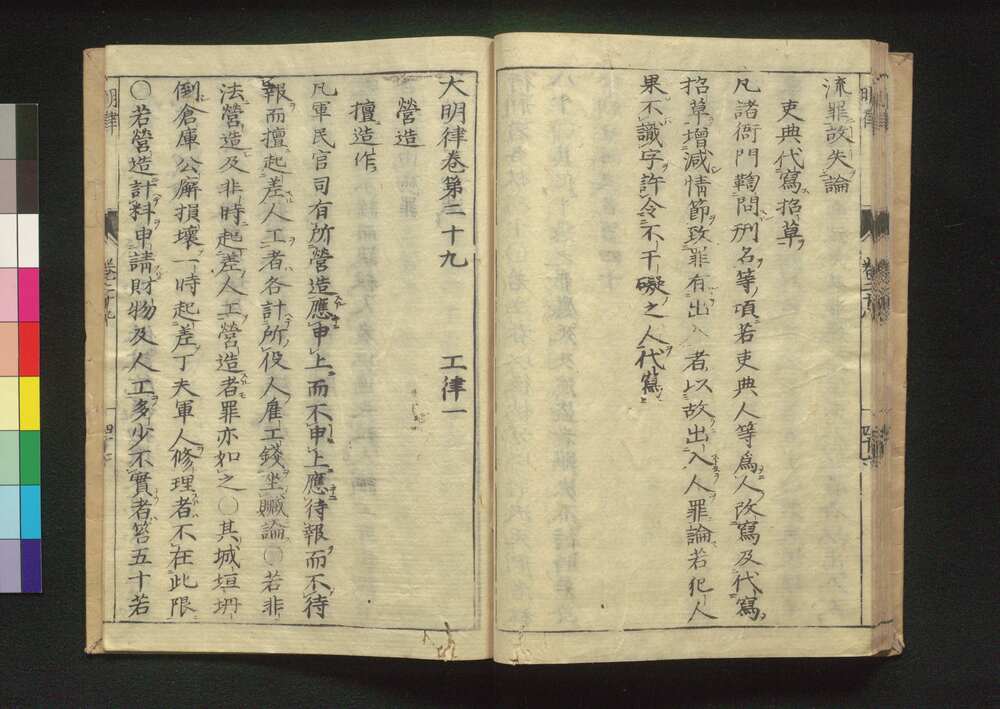 流罪故失論
吏典代寫招草
凡諸衙門鞫問刑名等項若吏典人等爲人改寫及代寫
招草增減情節致罪有出入者以故出入人罪論若犯人
果不識字許令不干礙之人代寫
大明律卷第二十九 工律一
營造
擅造作
凡軍民官司有所營造應申上而不申上應待報而不待
報而擅起差人工者各計所役人雇工錢坐贓論○若非
法營造及非時起差人工營造者罪亦如之○其城垣坍
倒倉庫公廨損壞一時起差丁夫軍人修理者不在此限
○若營造計料申請財物及人工多少不實者笞五十若